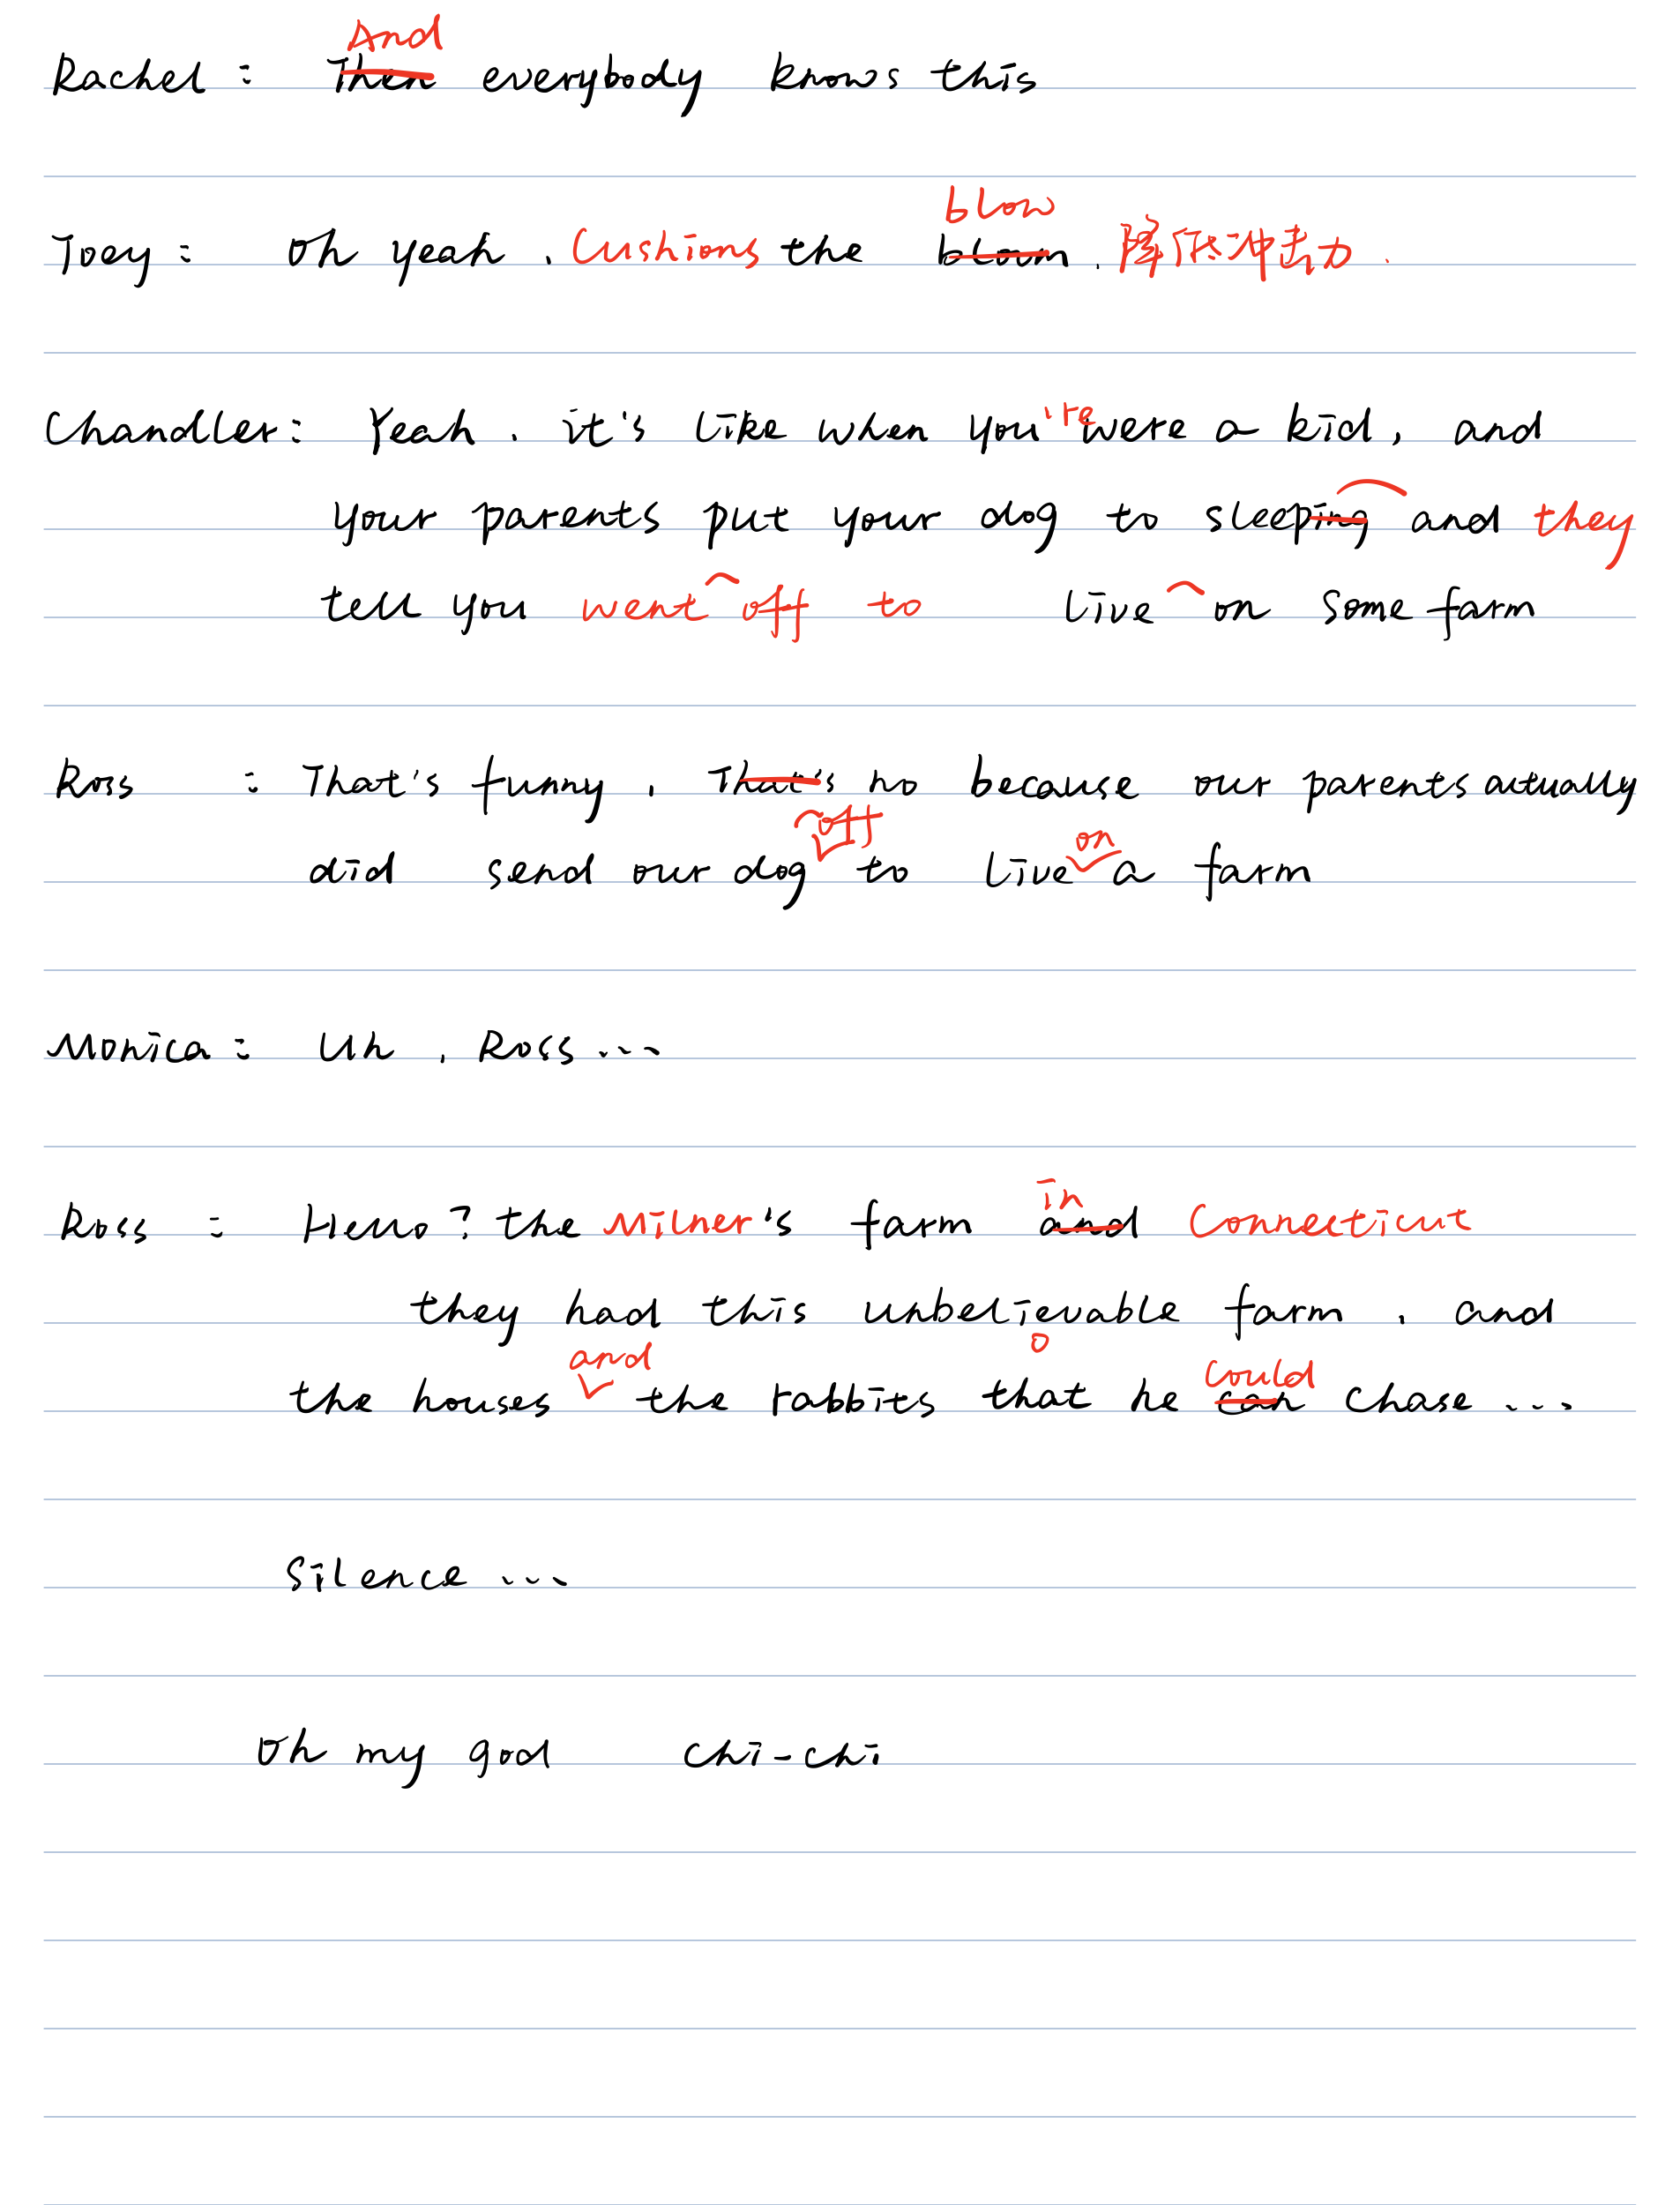 And
Rachel: Then everybody knows this
blow
Joey: Oh yeah, Cushions the bloom. 降低冲击力.
Chandler: Yeah, it's like when you're were a kid, and
your parents put your dog to sleeping and they
tell you went off to live on some farm
Ross: That's funny, That's no because our parents actually
off on
did send our dog to live a farm
Monica: Uh, Ross...
in
Ross: Hello? the Milner's farm and Connecticut
they had this unbelievable farm, and
and o could
the houses the rabbits that he can chase...
Silence...
Oh my god chi-chi